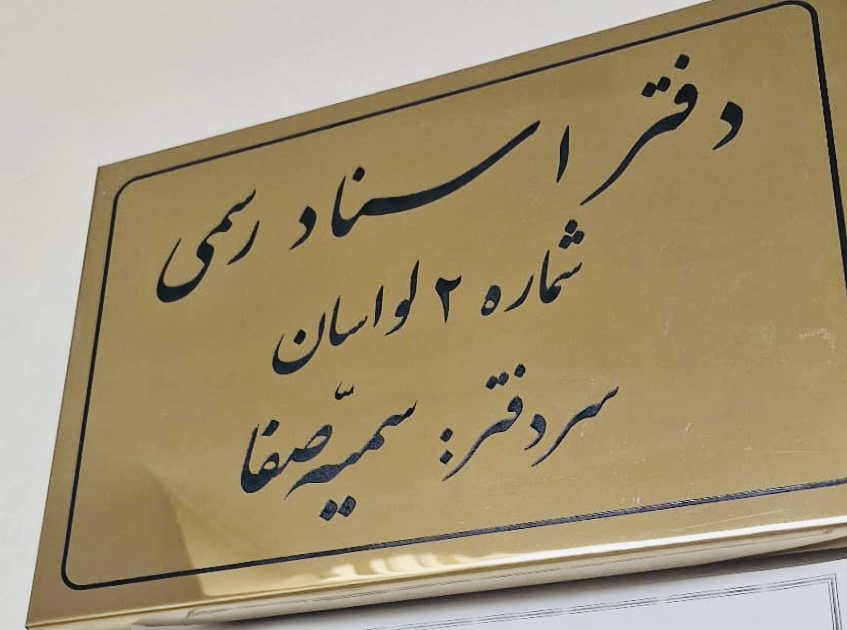 دفتر اسناد رسمی
شماره ۲ لواسان
سردفتر: سمیّه صفا